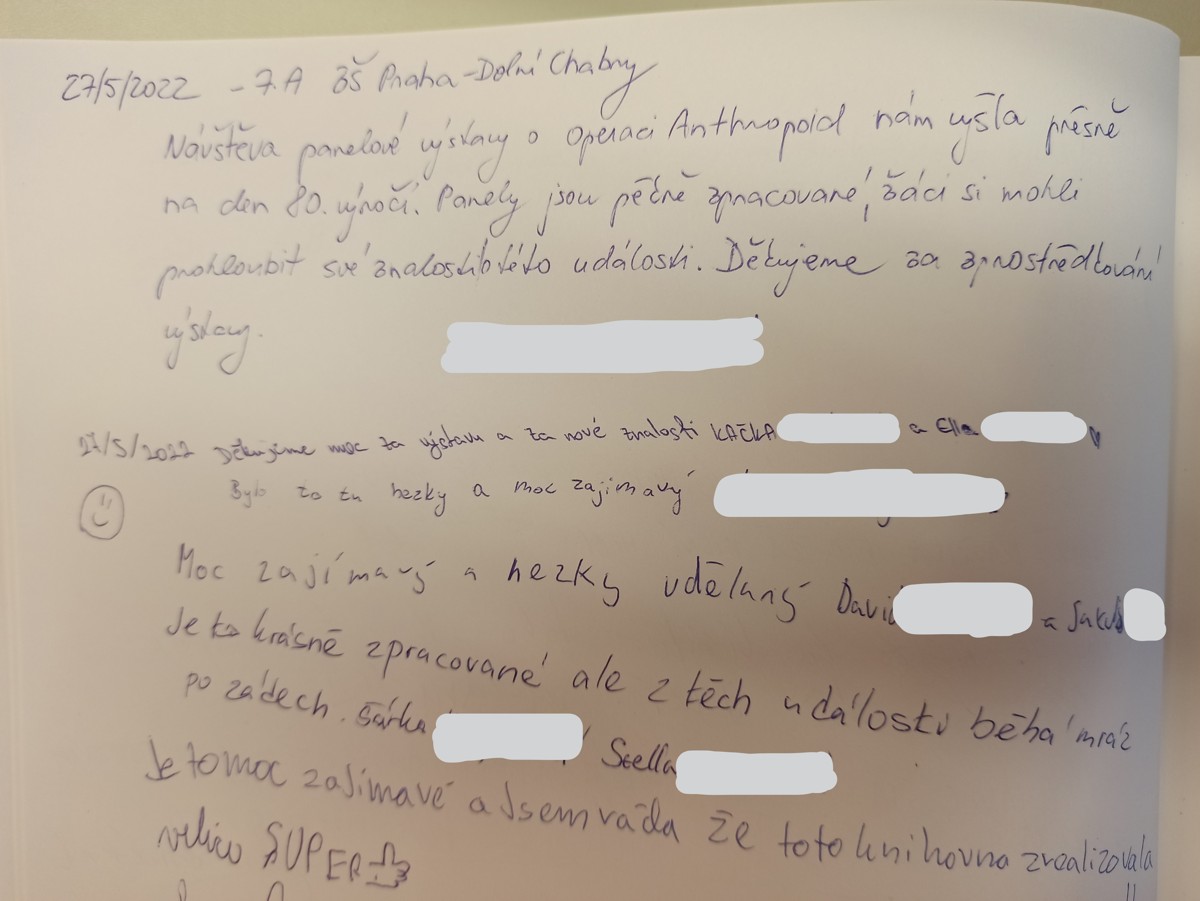 27/5/2022 - 7.A ZŠ Praha-Dolní Chabry
Návštěva panelové výstavy o operaci Anthropoid nám vyšla přesně
na den 80. výročí. Panely jsou pěčně zpracované, žáci si mohli
prohloubit své znalosti o této události. Děkujeme za zprostředkování
výstavy.
27/5/2022 Děkujeme moc za výstavu a za nové znalosti KAČKA a Ella
Bylo to tu hezky a moc zajímavý
Moc zajímavý a hezky udělaný David a Jakub
Je to krásně zpracované ale z těch událostí běhá mráz
po zádech. Šárka Stella
Je to moc zajímavé a Jsem ráda že toto knihovna zrealizovala
velice SUPER